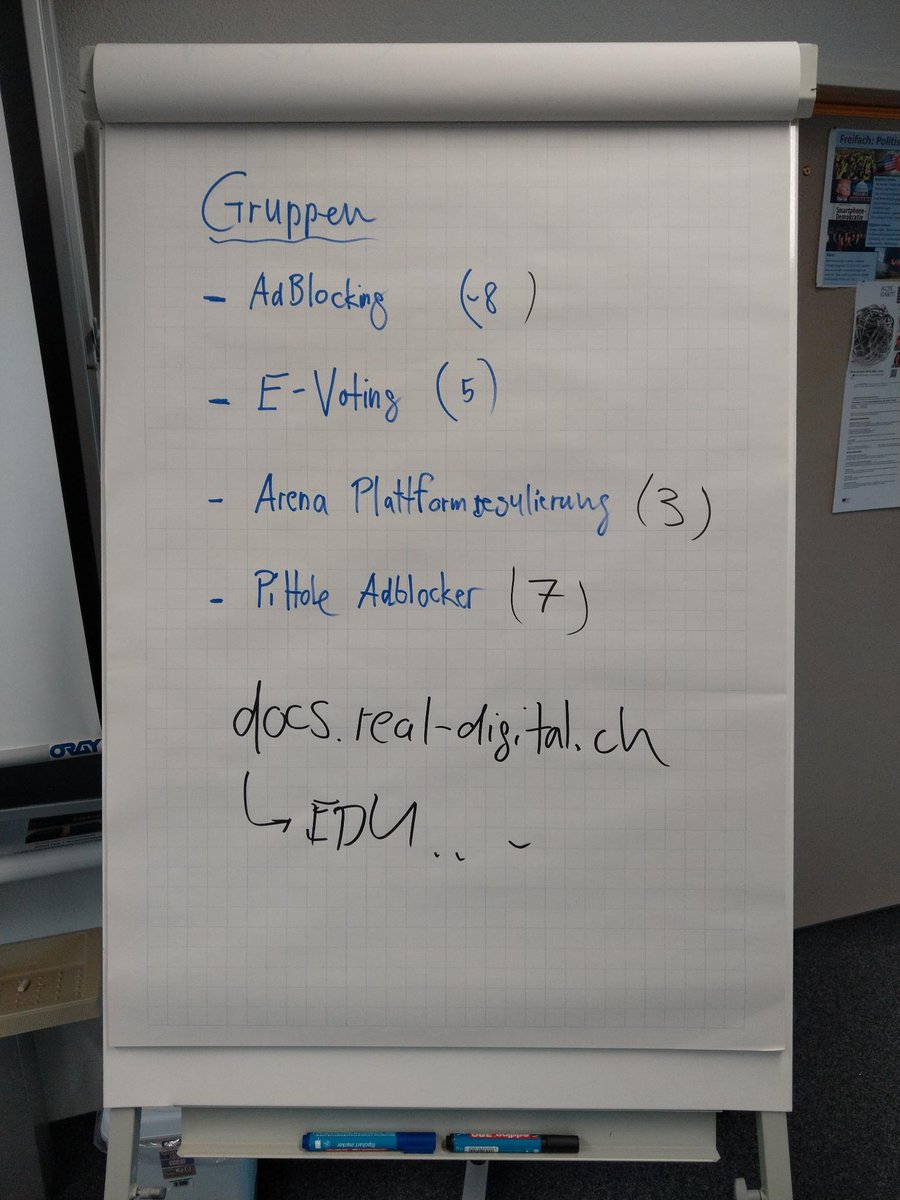 Gruppen
- AdBlocking (~8)
- E-Voting (5)
- Arena Plattformregulierung (3)
- PiHole Adblocker (7)
docs.real-digital.ch
↳ EDU...
ORAY
Freifach: Politis
Smartphone-
Demokratie
flipchart marker